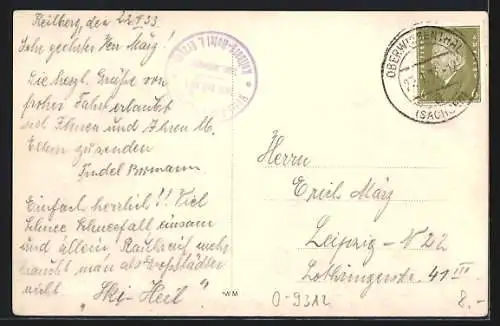 Keilberg, den 22.1.33
Sehr geehrter Herr März!
Die herzl. Grüße von
froher Fahrt erlaubt
sich Ihnen und Ihren lb.
Eltern zu senden
Trudel Bormann.
Einfach herrlich!! Viel
Schnee, Schneefall, einsam
und allein, Rauhreif mehr
braucht man als Großstädter
nicht "Ski-Heil"
OBERWIESENTHAL
(SACHS.)
DEUTSCHES REICH
Herrn
Erich März
Leipzig-N 22
Lothringerstr. 41 III
WM
0-9312
8.-